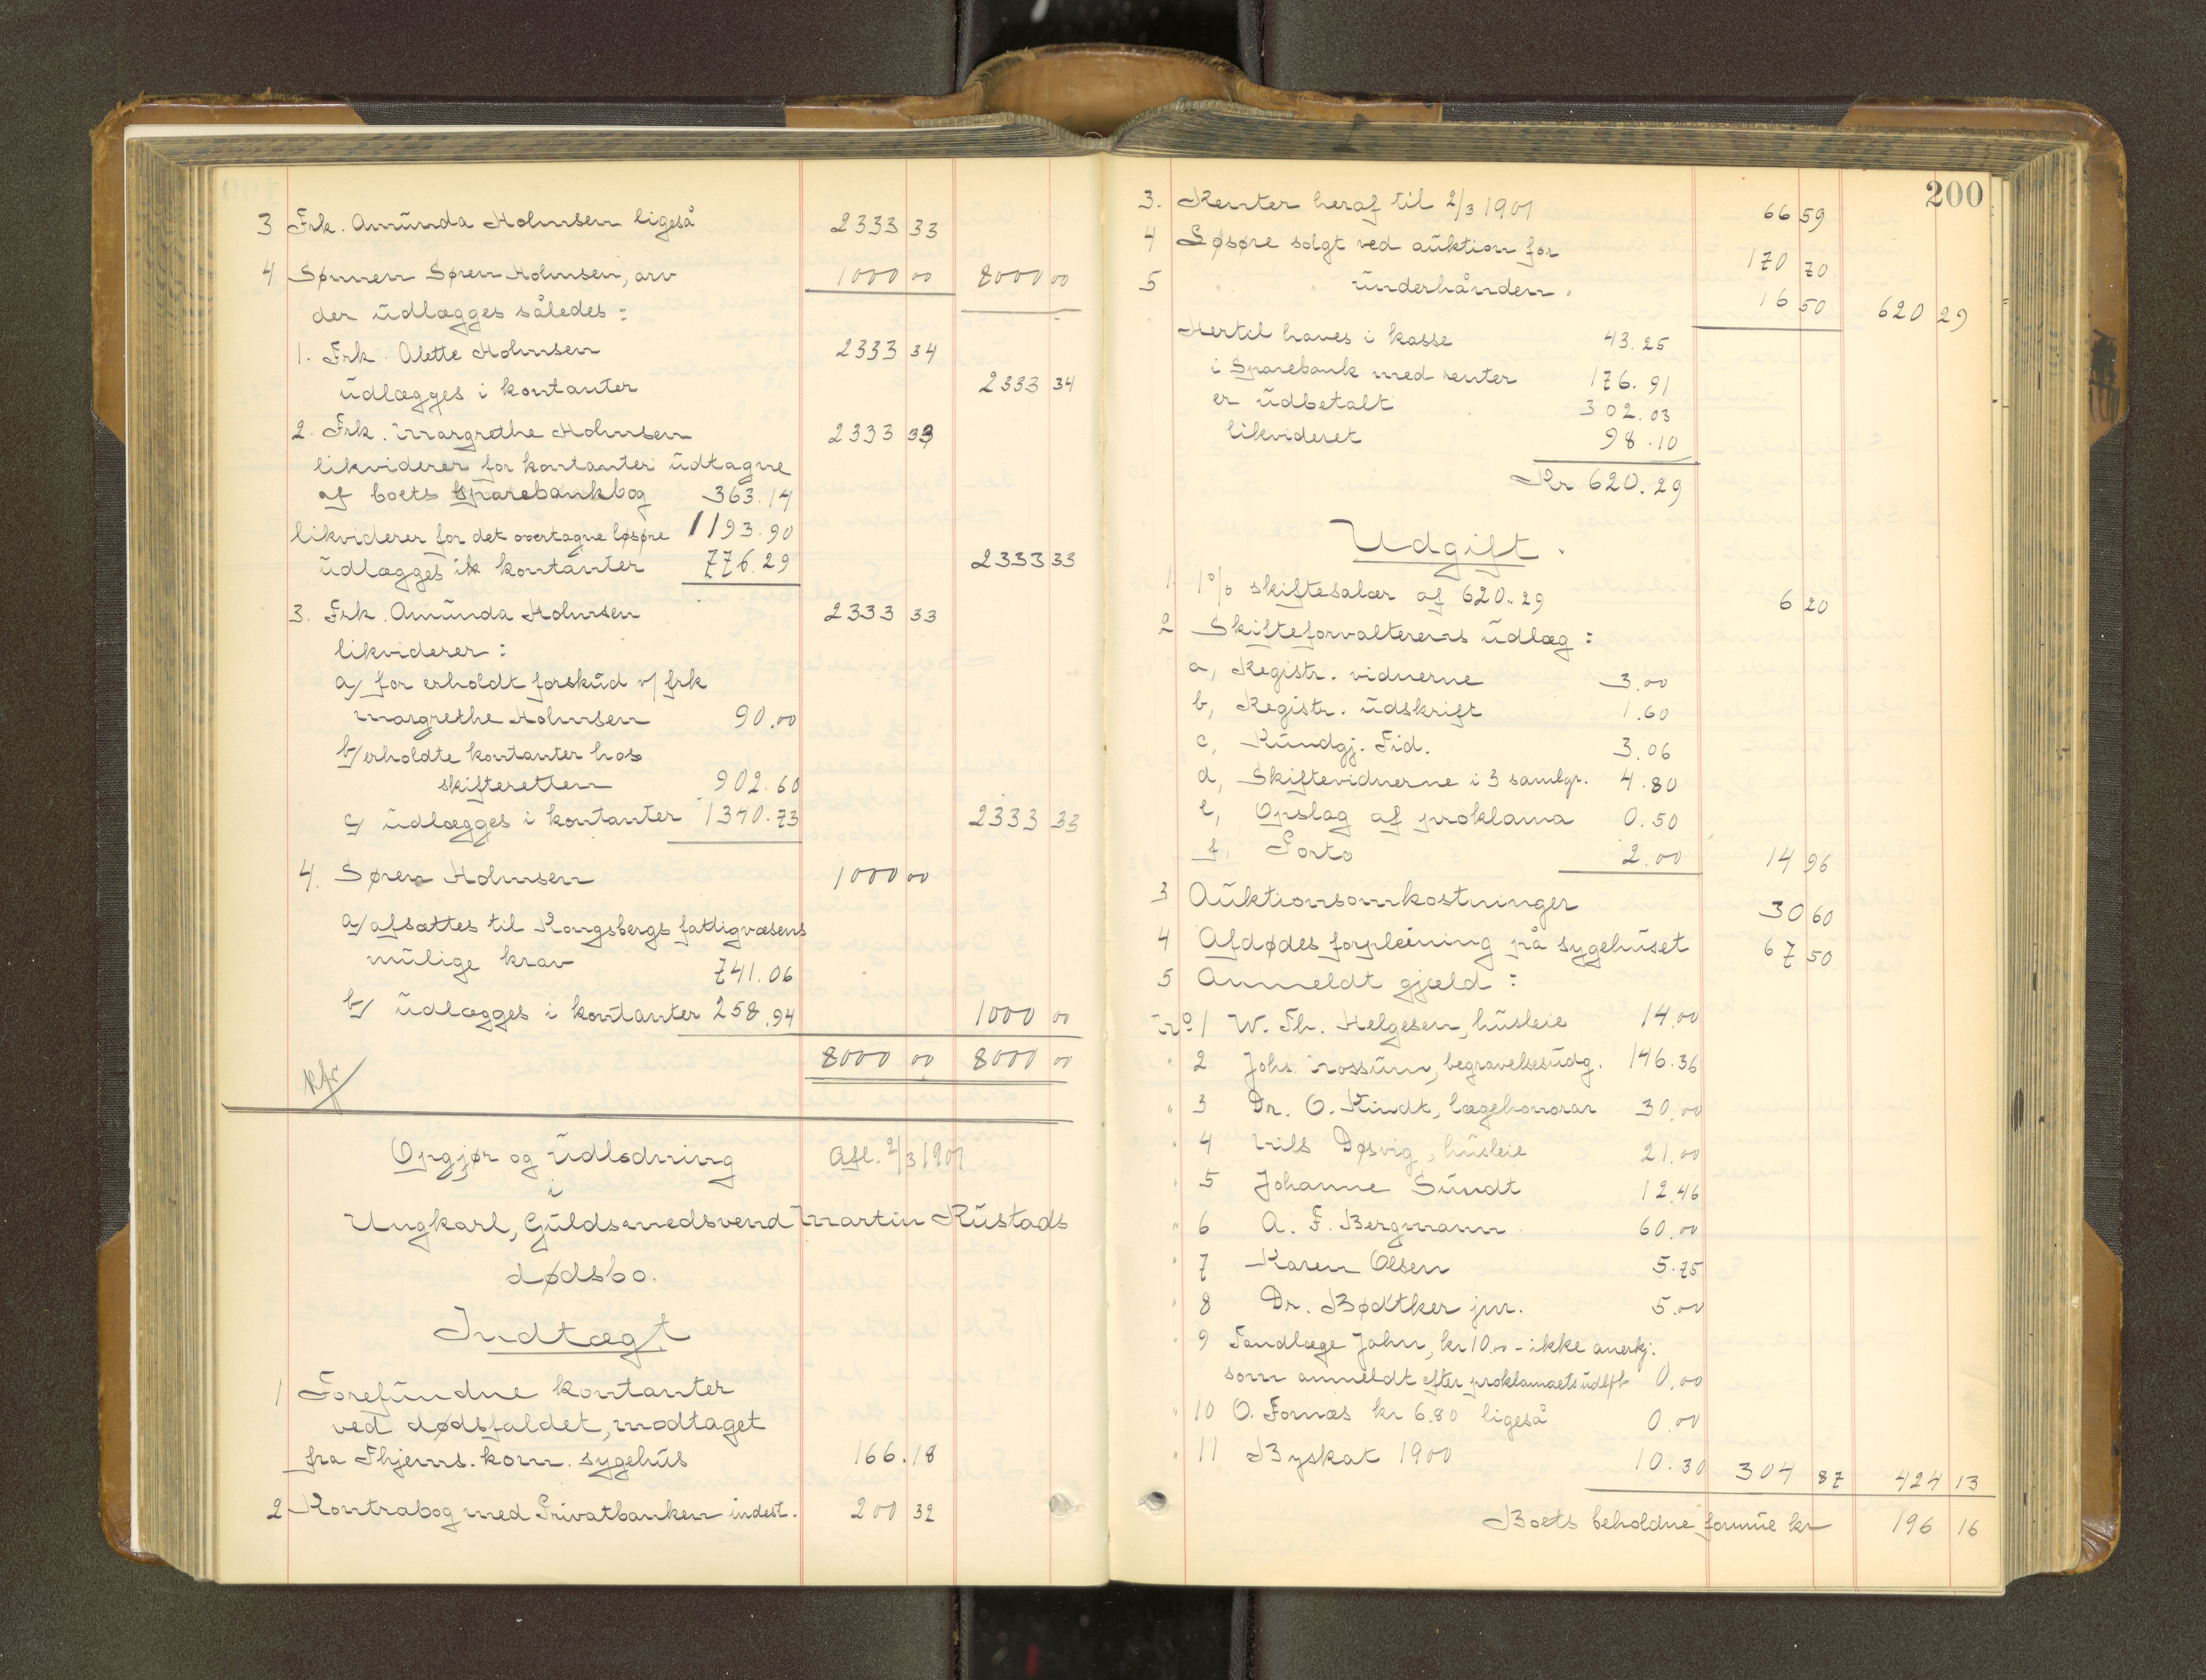 3 Frk. Amunda Holmsen ligeså 2333 33
4 Sønnen Søren Holmsen, arv 1000 00 8000 00
der udlægges således:
1. Frk. Alette Holmsen 2333 34
udlægges i kontanter 2333 34
2. Frk. Margrethe Holmsen 2333 33
likviderer for kontanter udtagne
af boets Sparebankbog 363.14
likviderer for det overtagne løsøre 1193.90
udlægges i kontanter 776.29 2333 33
3. Frk. Amunda Holmsen 2333 33
likviderer:
a/ for erholdt forskud v/ frk
Margrethe Holmsen 90.00
b/ erholdte kontanter hos
skifteretten 902.60
c/ udlægges i kontanter 1340.73 2333 33
4. Søren Holmsen 1000 00
a/ afsættes til Kongsbergs fattigvæsens
mulige krav 741.06
b/ udlægges i kontanter 258.94 1000 00
8000 00 8000 00
Opgjør og udlodning Afl. 2/3 1901
i
Ungkarl, Guldsmedsvend Martin Rustads
dødsbo.
Indtægt
1 Forefundne kontanter
ved dødsfaldet, modtaget
fra Thjems. kom. sygehus 166.18
2 Kontrabog med Privatbanken indest. 200 32
200
3. Renter heraf til 2/3 1901 66 59
4 Løsøre solgt ved auktion for 170 70
5 " " underhånden " 16 50 620 29
Hertil haves i kasse 43.25
i Sparebank med renter 176.91
er udbetalt 302.03
likvideret 98.10
Kr 620.29
Udgift.
1 1% skiftesalær af 620.29 6 20
2 Skifteforvalterens udlæg:
a, Registr. vidnerne 3.00
b, Registr. udskrift 1.60
c, Kundgj. Tid. 3.06
d, Skiftevidnerne i 3 samlgr. 4.80
e, Opslag af proklama 0.50
f, Porto 2.00 14 96
3 Auktionsomkostninger 30 60
4 Afdødes forpleining på sygehuset 67 50
5 Anmeldt gjæld:
No 1 W. Th. Helgesen, husleie 14.00
" 2 Johs. Mossum, begravelsesudg. 146.36
" 3 Dr. O. Kindt, lægehonorar 30.00
" 4 Nils Døsvig, husleie 21.00
" 5 Johanne Sundt 12.46
" 6 A. F. Bergmann 60.00
" 7 Karen Olsen 5.75
" 8 Dr. Bødtker jnr. 5.00
" 9 Tandlæge Jahn, kr 10.00 - ikke anerkj.
som anmeldt efter proklamaets udløb 0.00
" 10 O. Fornæs kr 6.80 ligeså 0.00
" 11 Byskat 1900 10.30 304 87 424 13
Boets beholdne formue kr 196 16